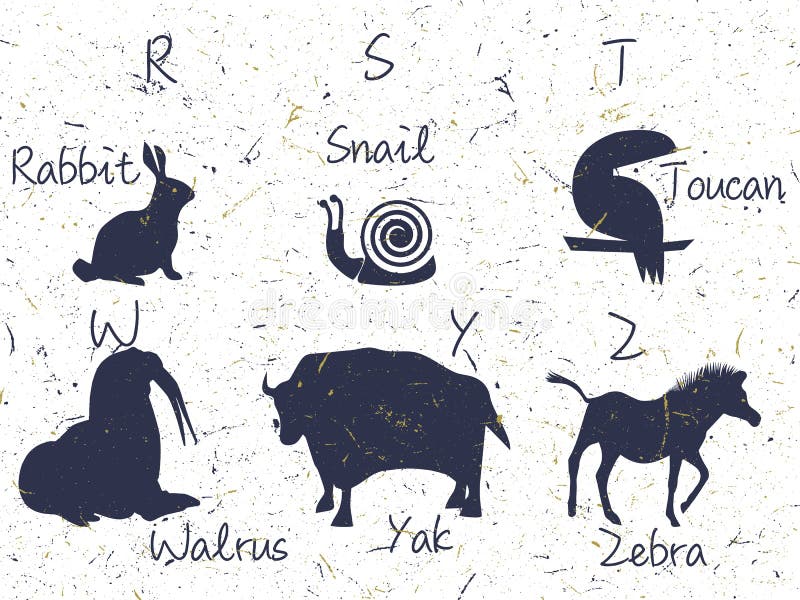 R S T
Rabbit Snail Toucan
dreamstime
W Y Z
Walrus Yak Zebra